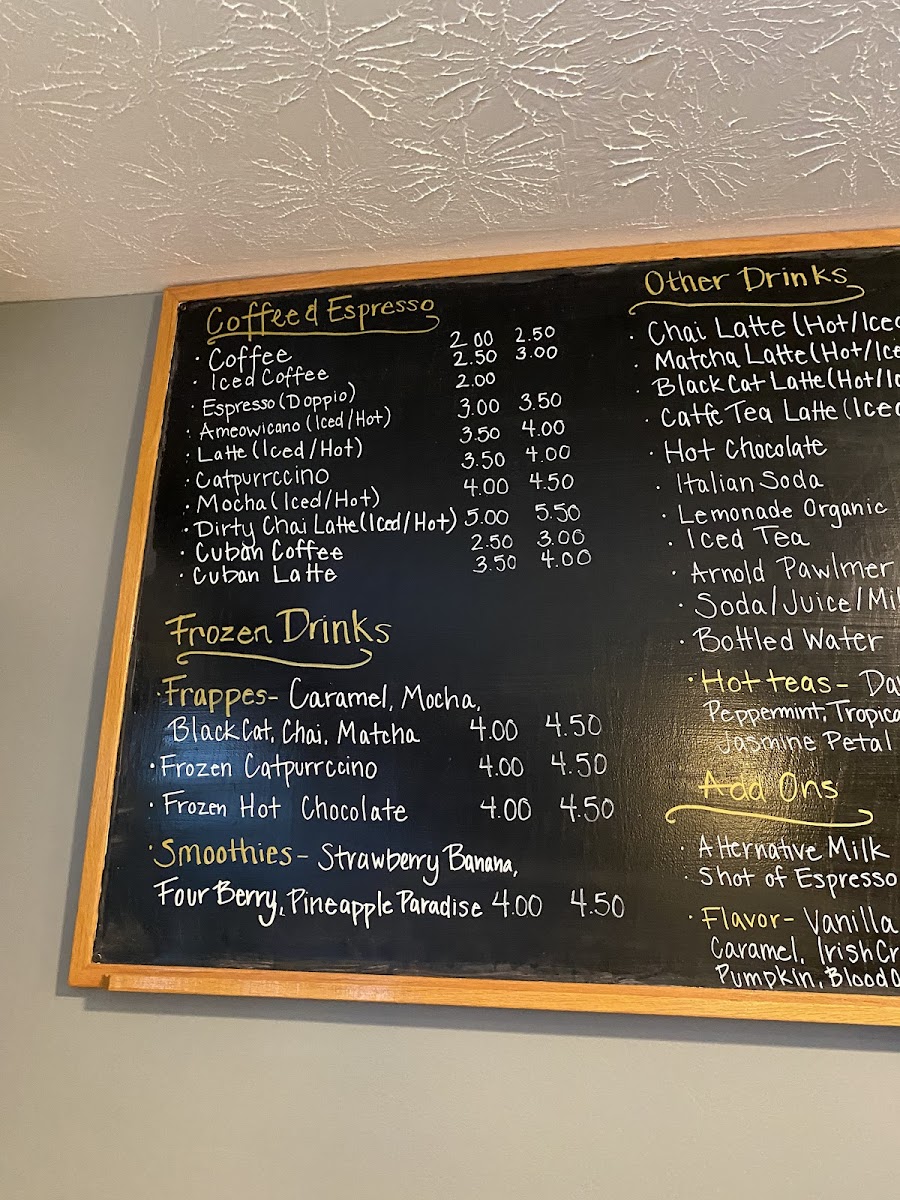 Coffee & Espresso
· Coffee 2.00 2.50
· Iced Coffee 2.50 3.00
· Espresso (Doppio) 2.00
· Ameowicano (Iced/Hot) 3.00 3.50
· Latte (Iced/Hot) 3.50 4.00
· Catpurrccino 3.50 4.00
· Mocha (Iced/Hot) 4.00 4.50
· Dirty Chai Latte (Iced/Hot) 5.00 5.50
· Cuban Coffee 2.50 3.00
· Cuban Latte 3.50 4.00
Frozen Drinks
· Frappes - Caramel, Mocha,
Black Cat, Chai, Matcha 4.00 4.50
· Frozen Catpurrccino 4.00 4.50
· Frozen Hot Chocolate 4.00 4.50
· Smoothies - Strawberry Banana,
Four Berry, Pineapple Paradise 4.00 4.50
Other Drinks
· Chai Latte (Hot/Iced
· Matcha Latte (Hot/Ice
· Black Cat Latte (Hot/Ic
· Caffe Tea Latte (Iced
· Hot Chocolate
· Italian Soda
· Lemonade Organic
· Iced Tea
· Arnold Pawlmer
· Soda/Juice/Mil
· Bottled Water
· Hot teas - Da
Peppermint, Tropica
Jasmine Petal
Add Ons
· Alternative Milk
· Shot of Espresso
· Flavor - Vanilla
Caramel, Irish Cr
Pumpkin, Blood O